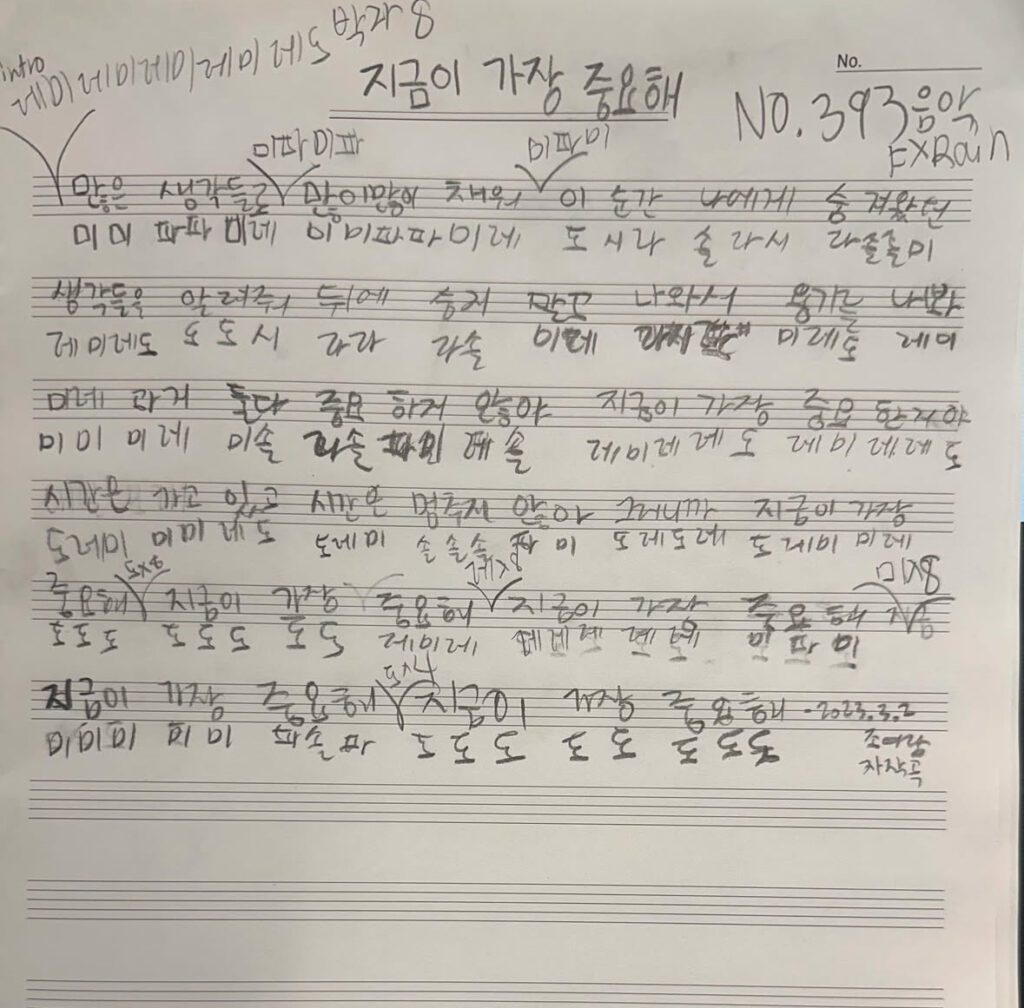 intro
레미레미레미레미레도 박자8
지금이 가장 중요해
No.
NO.393 음악
미파미파 미파미
많은 생각들로 머릿속이 채워 이 순간 나에게 숨 겨왔던
미미 파파 미레 미미파파파미레 도시라 솔라시 라솔솔미
생각들을 알려주 뒤에 숨지 말고 나와서 용기를 내봐
레미레도 도도시 라라 라솔 미레 미레도 레미
미래 과거 둘다 중요 하지 않아 지금이 가장 중요 한거야
미미 미레 미솔 라솔 레 솔 레미레레 도 레미레레 도
시간은 가고 있고 시간은 멈추지 않아 그러니까 지금이 가장
도레미 미미 레도 도레미 솔솔솔 파미 도레도레 도레미 미레
레x8 미x8
중요해 지금이 가장 중요해 지금이 가장 중요해
도도도 도도도 도도 레미레 레레레 레레 미파미
지금이 가장 중요해 지금이 가장 중요해 -2023.3.2
미미미 미미 파솔파 도도도 도도 도도도
자작곡